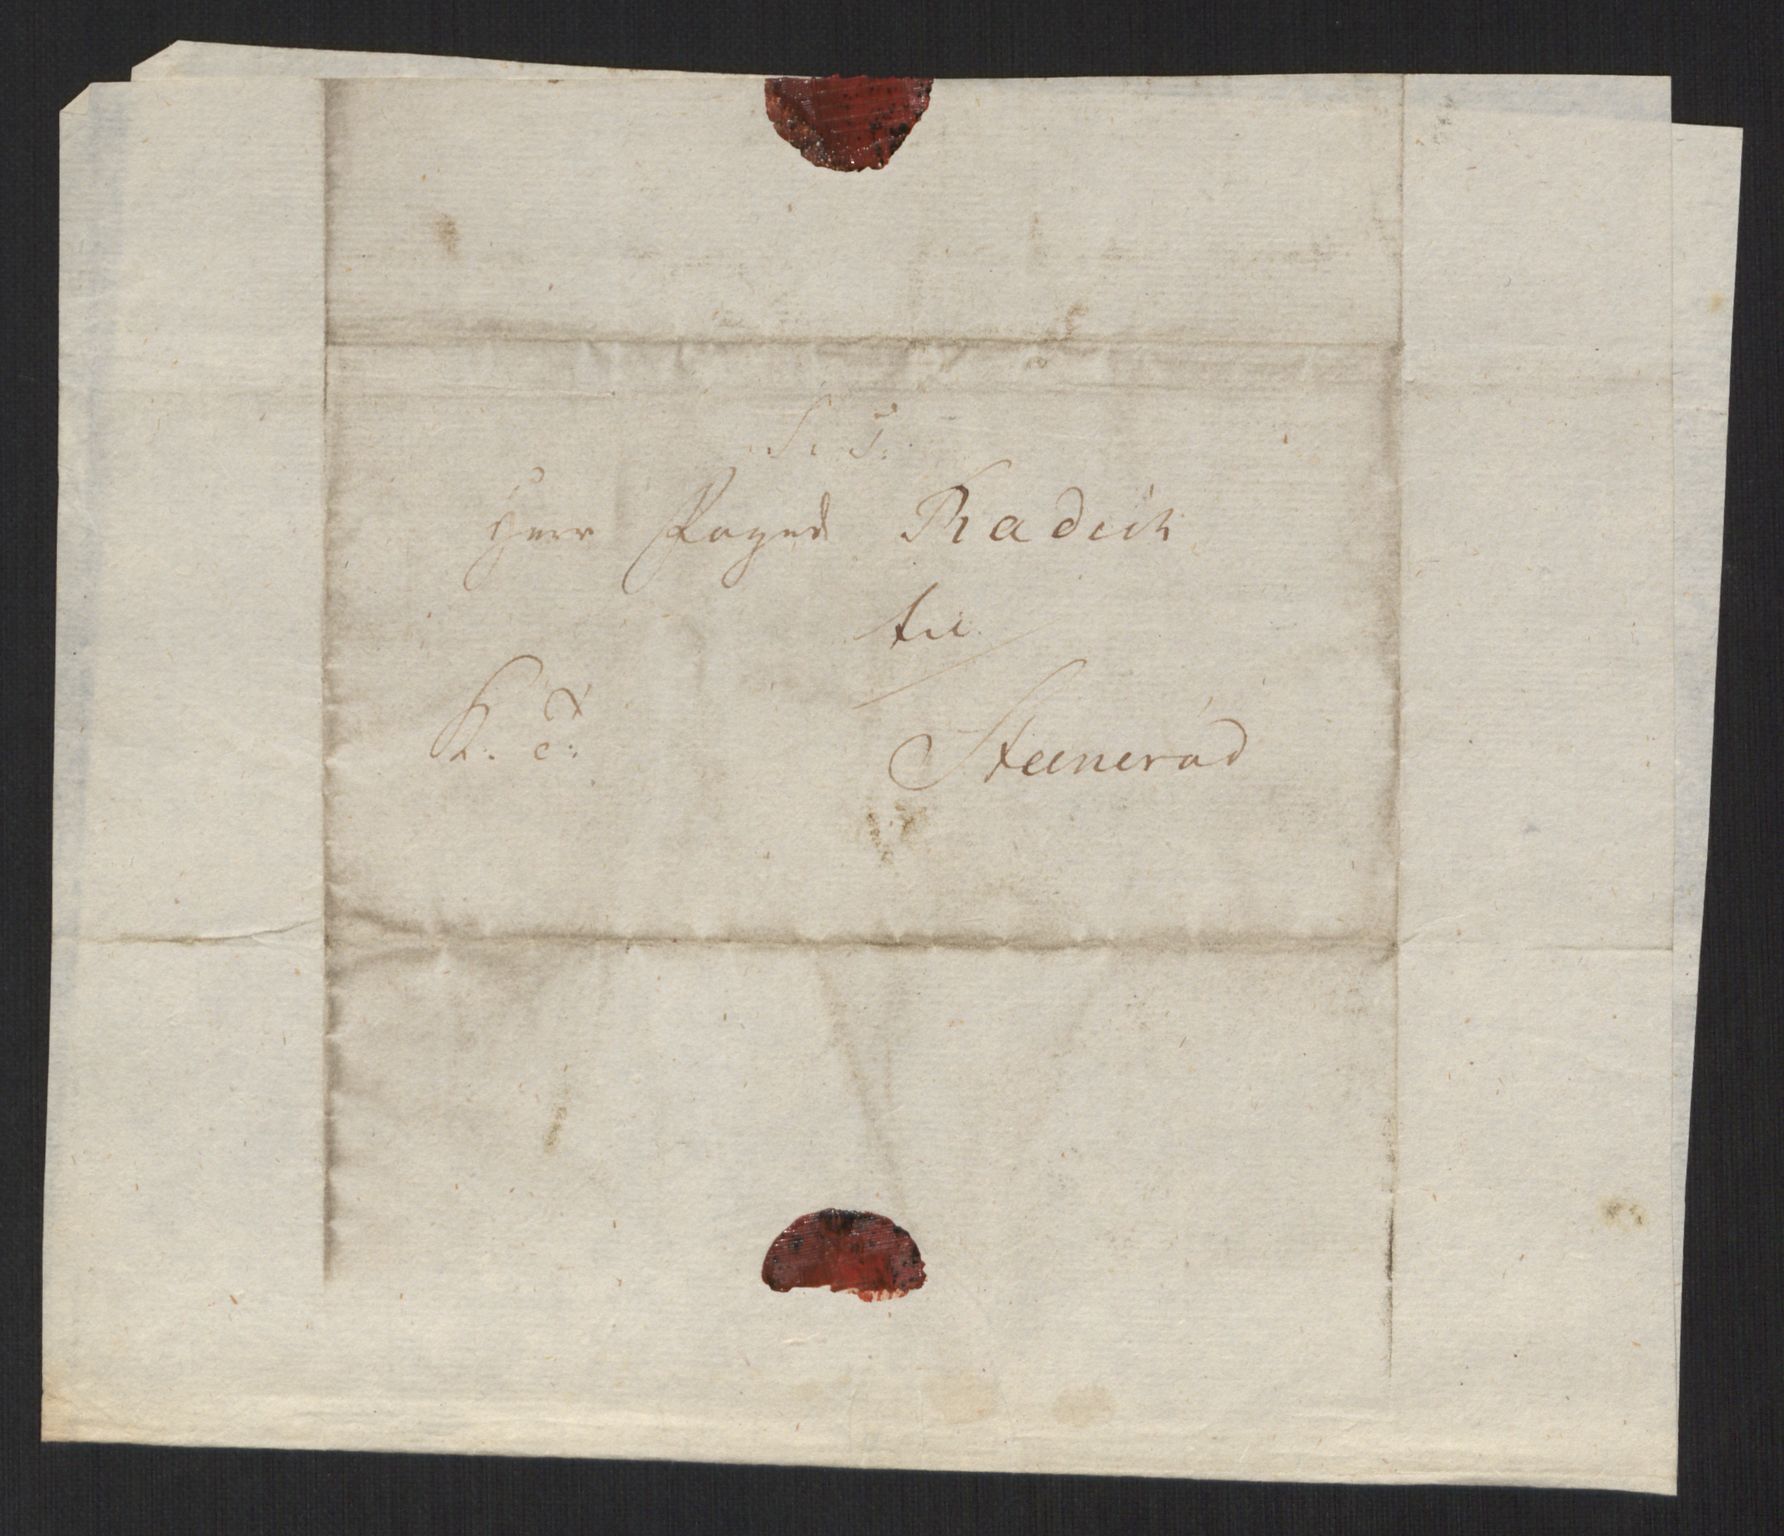 S. T.
Herr Foged Radich
til
K. T.
Steenerød